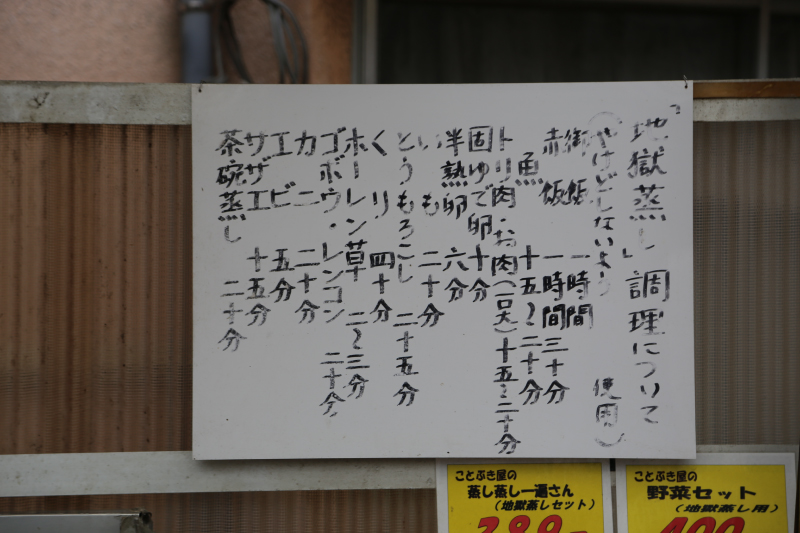 「地獄蒸し」調理について
(やけどしないよう 使用)
御飯 一時間
赤飯 一時間三十分
魚 十五〜二十分
トリ肉・お肉(一口大)十五〜二十分
固ゆで卵 十分
半熟卵 六分
いも 二十分
とうもろこし 二十五分
くり 四十分
ホーレン草 二〜三分
ゴボウ・レンコン 二十分
カニ 二十分
エビ 五分
サザエ 十五分
茶碗蒸し 二十分
ことぶき屋の
蒸し蒸し一遍さん
(地獄蒸しセット)
ことぶき屋の
野菜セット
(地獄蒸し用)
400